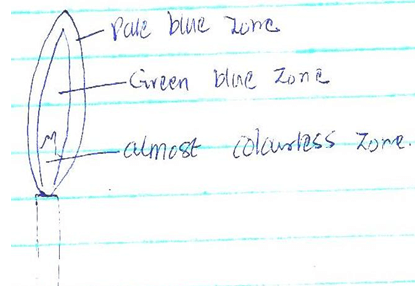 Pale blue zone
Green blue zone
M
almost colourless zone.